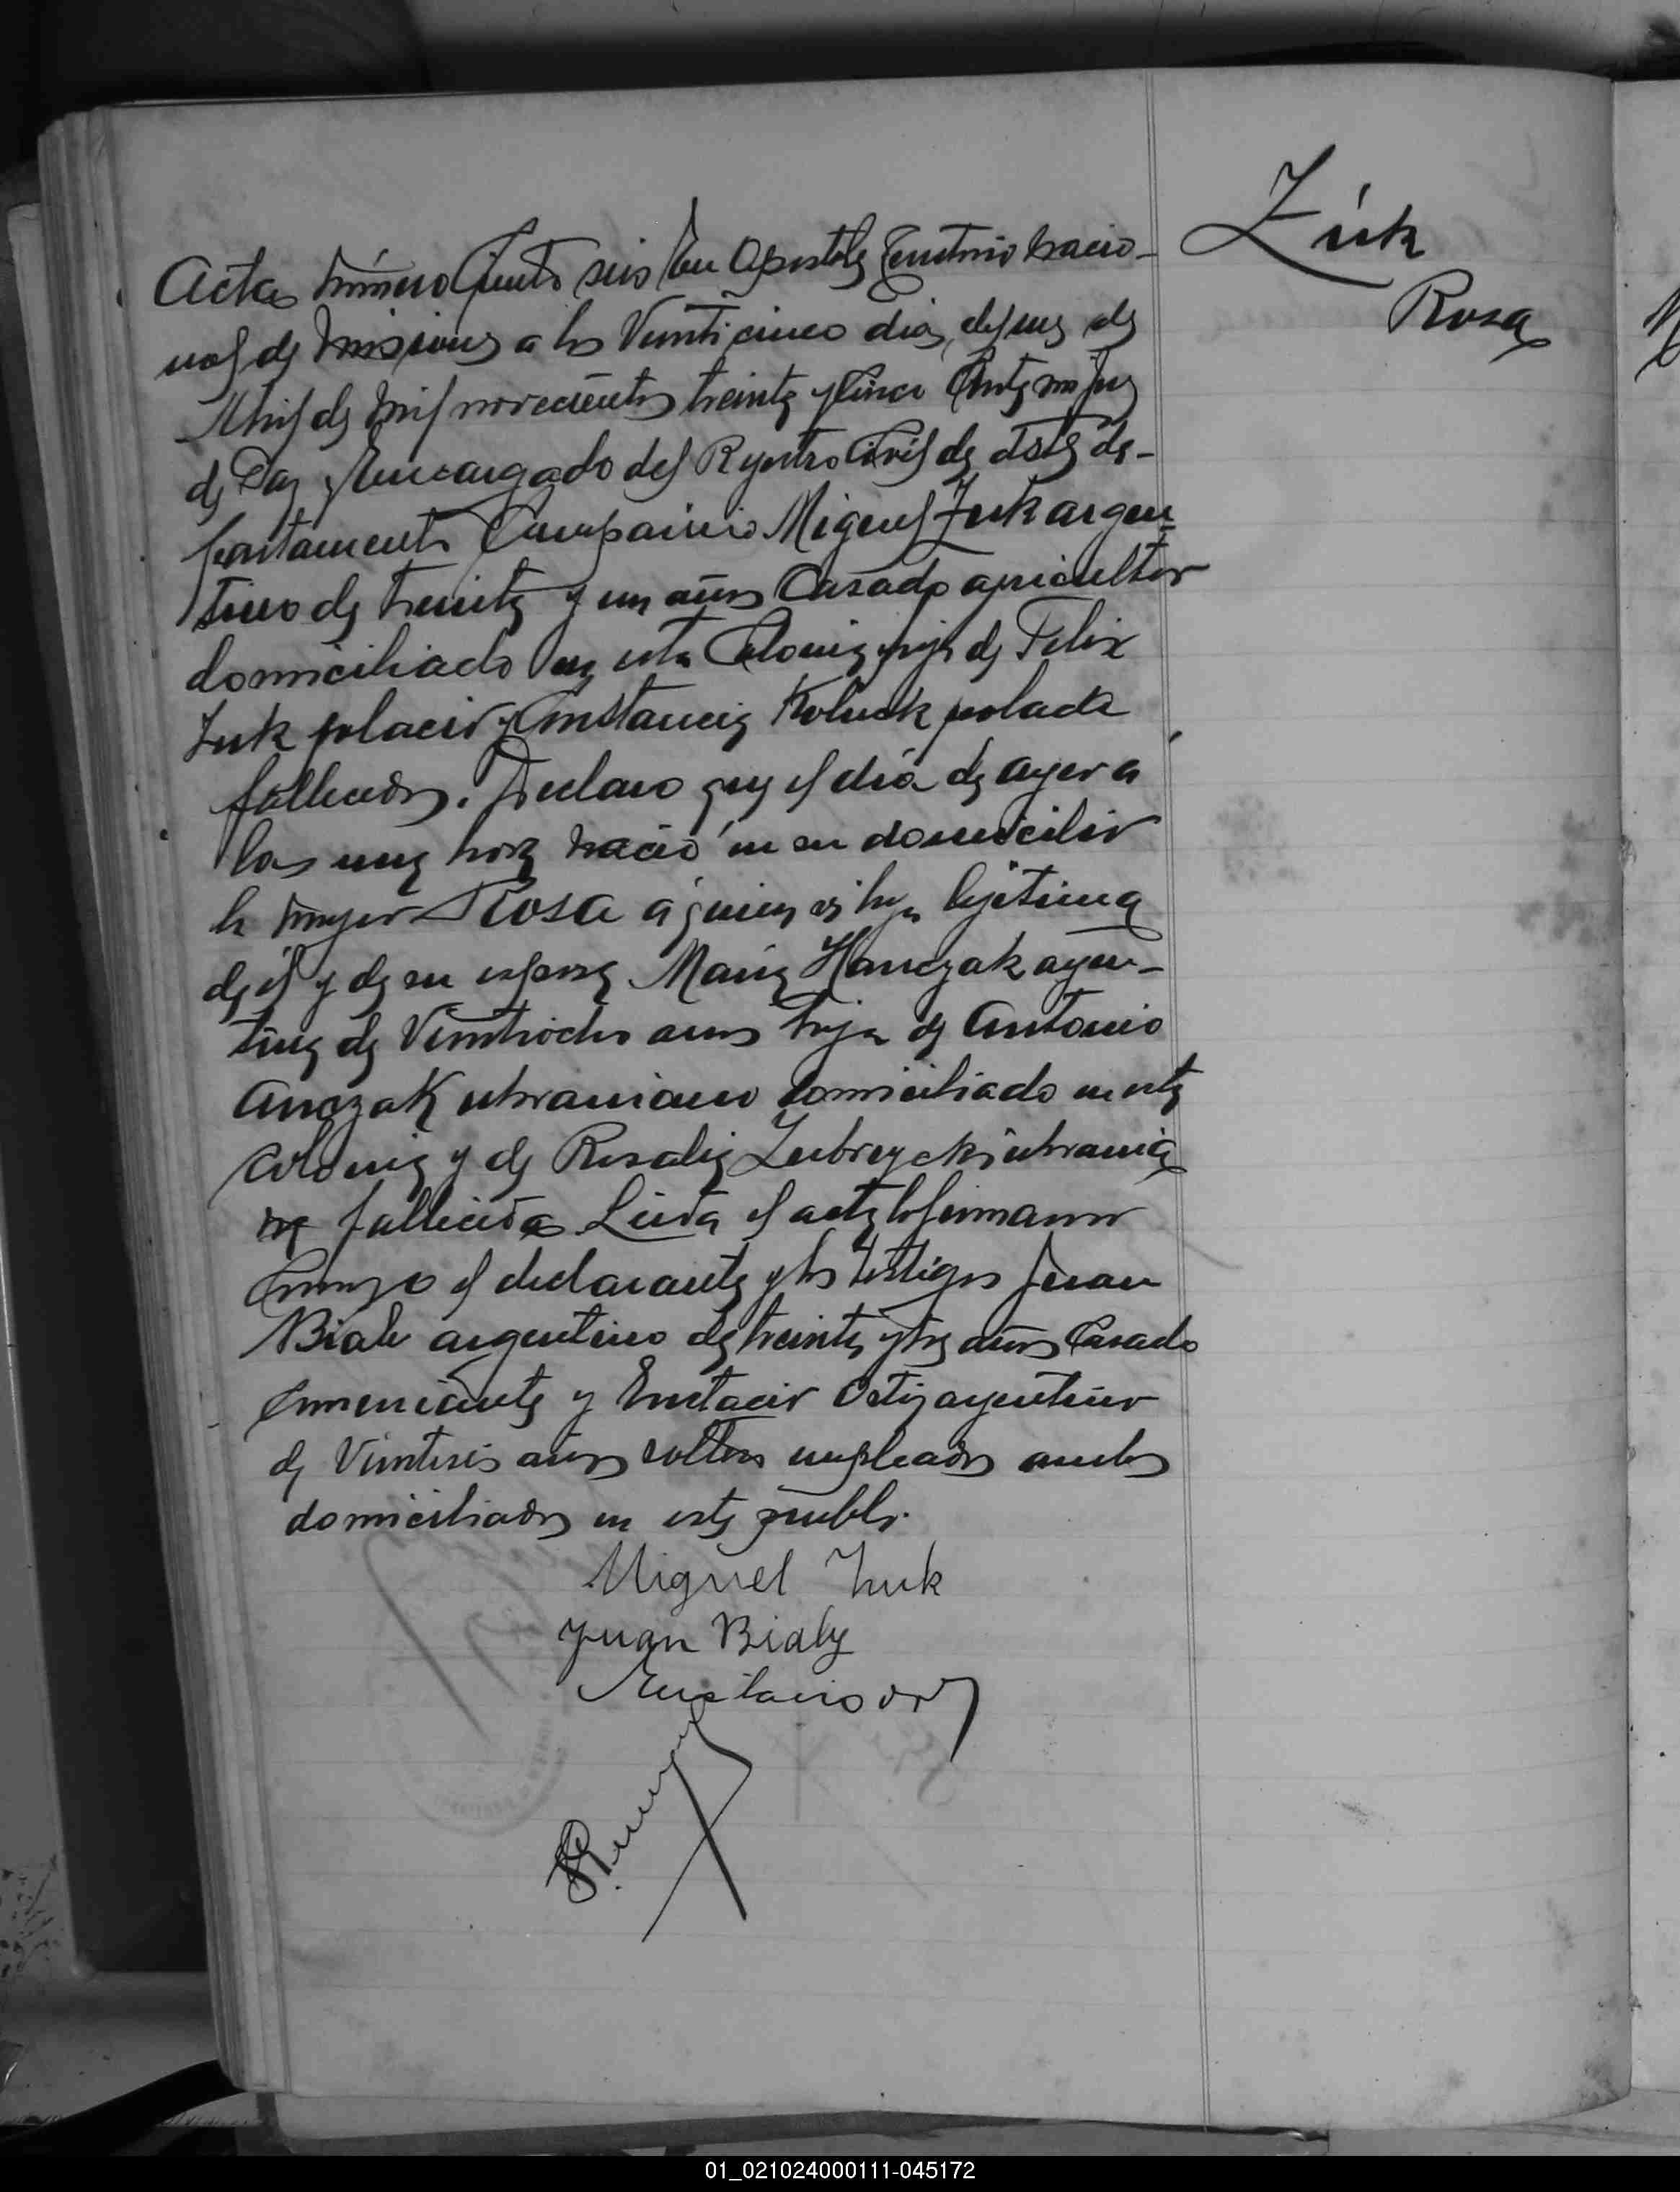 Zuk
Rosa
Acta número Ciento seis En Apostoles Territorio Nacio-
nal de Misiones a los Veinticinco dias del mes de
Abril de mil novecientos treinta y cinco Ante mi Juez
de Paz y Encargado del Registro Civil de este de-
partamento Comparecio Miguel Zuk argen-
tino de treinta y un años Casado agricultor
domiciliado en esta Colonia hijo de Felix
Zuk polaco y Constancia Koluck polaca
fallecidos. Declaro que el día de ayer a
las una hora nació en su domicilio
la mujer Rosa a quien es hija lejitima
de él y de su esposa Maria Hanczak argen-
tina de Veintiocho años hija de Antonio
Anczak ukraniano domiciliado en esta
colonia y de Rosalia Zubrzycki ukrania
na fallecida Leida el acta la firmaron
conmigo el declarante y los testigos Juan
Biale argentino de treinta y tres años Casado
Comerciante y Eustacio Ortiz argentino
de Veintiseis años soltero empleados ambos
domiciliados en este pueblo.
Miguel Zuk
Juan Bialy
Eustacio
01_021024000111-045172